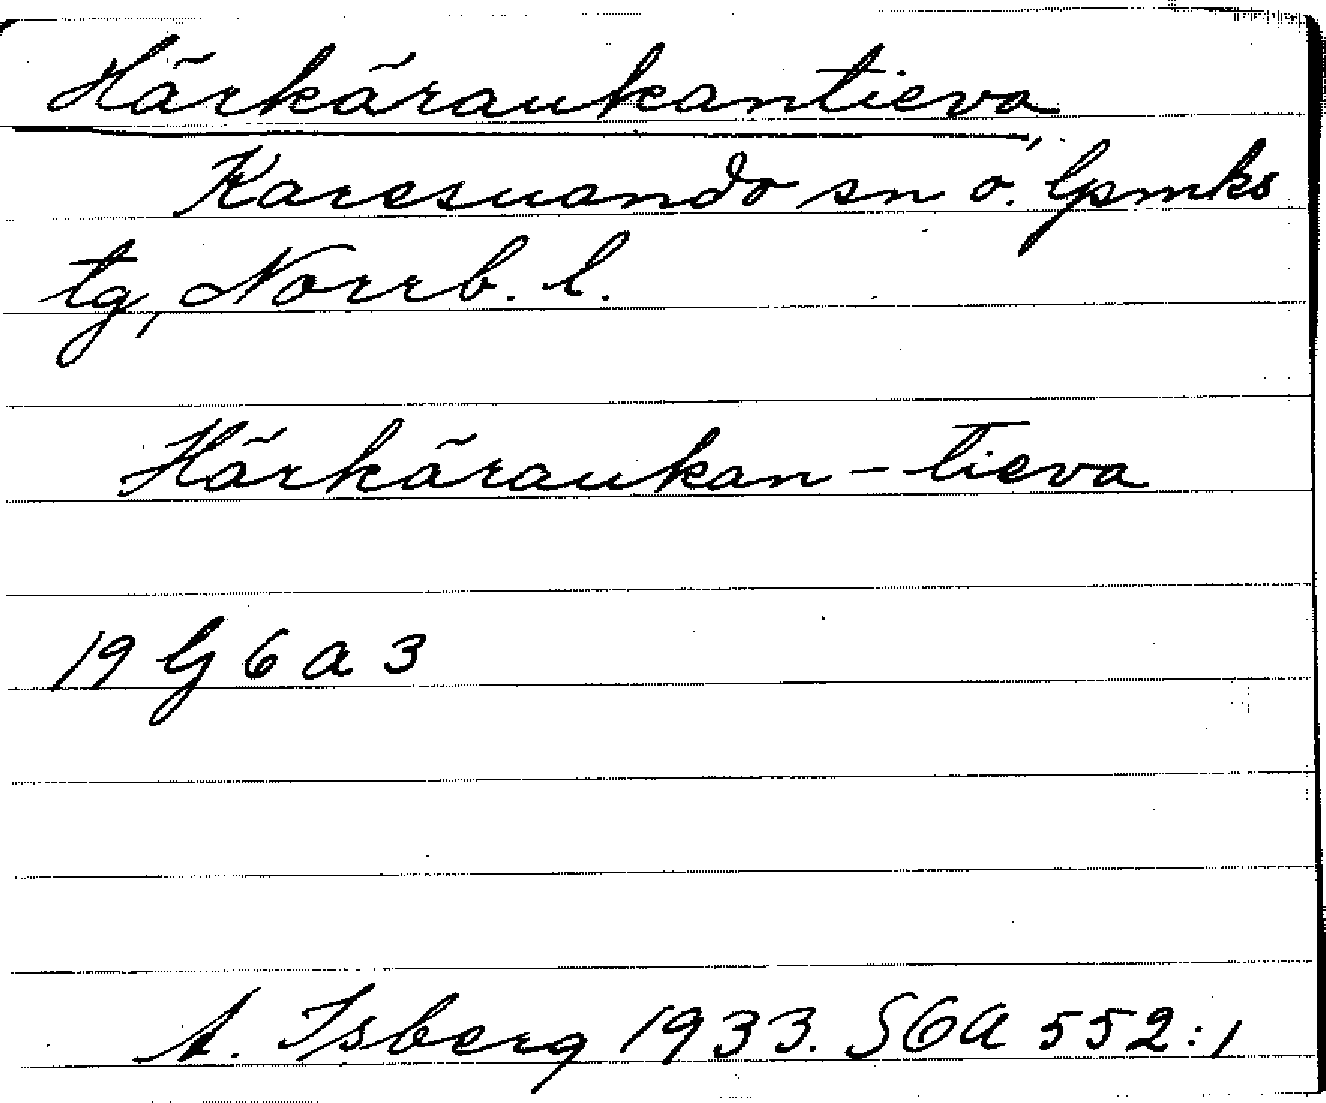 Härkäraukantieva
Karesuando sn ö. lpmks
tg, Norrb. l.
Härkäraukan - tieva
19 G 6 a 3
A. Isberg 1933. SOA 552:1